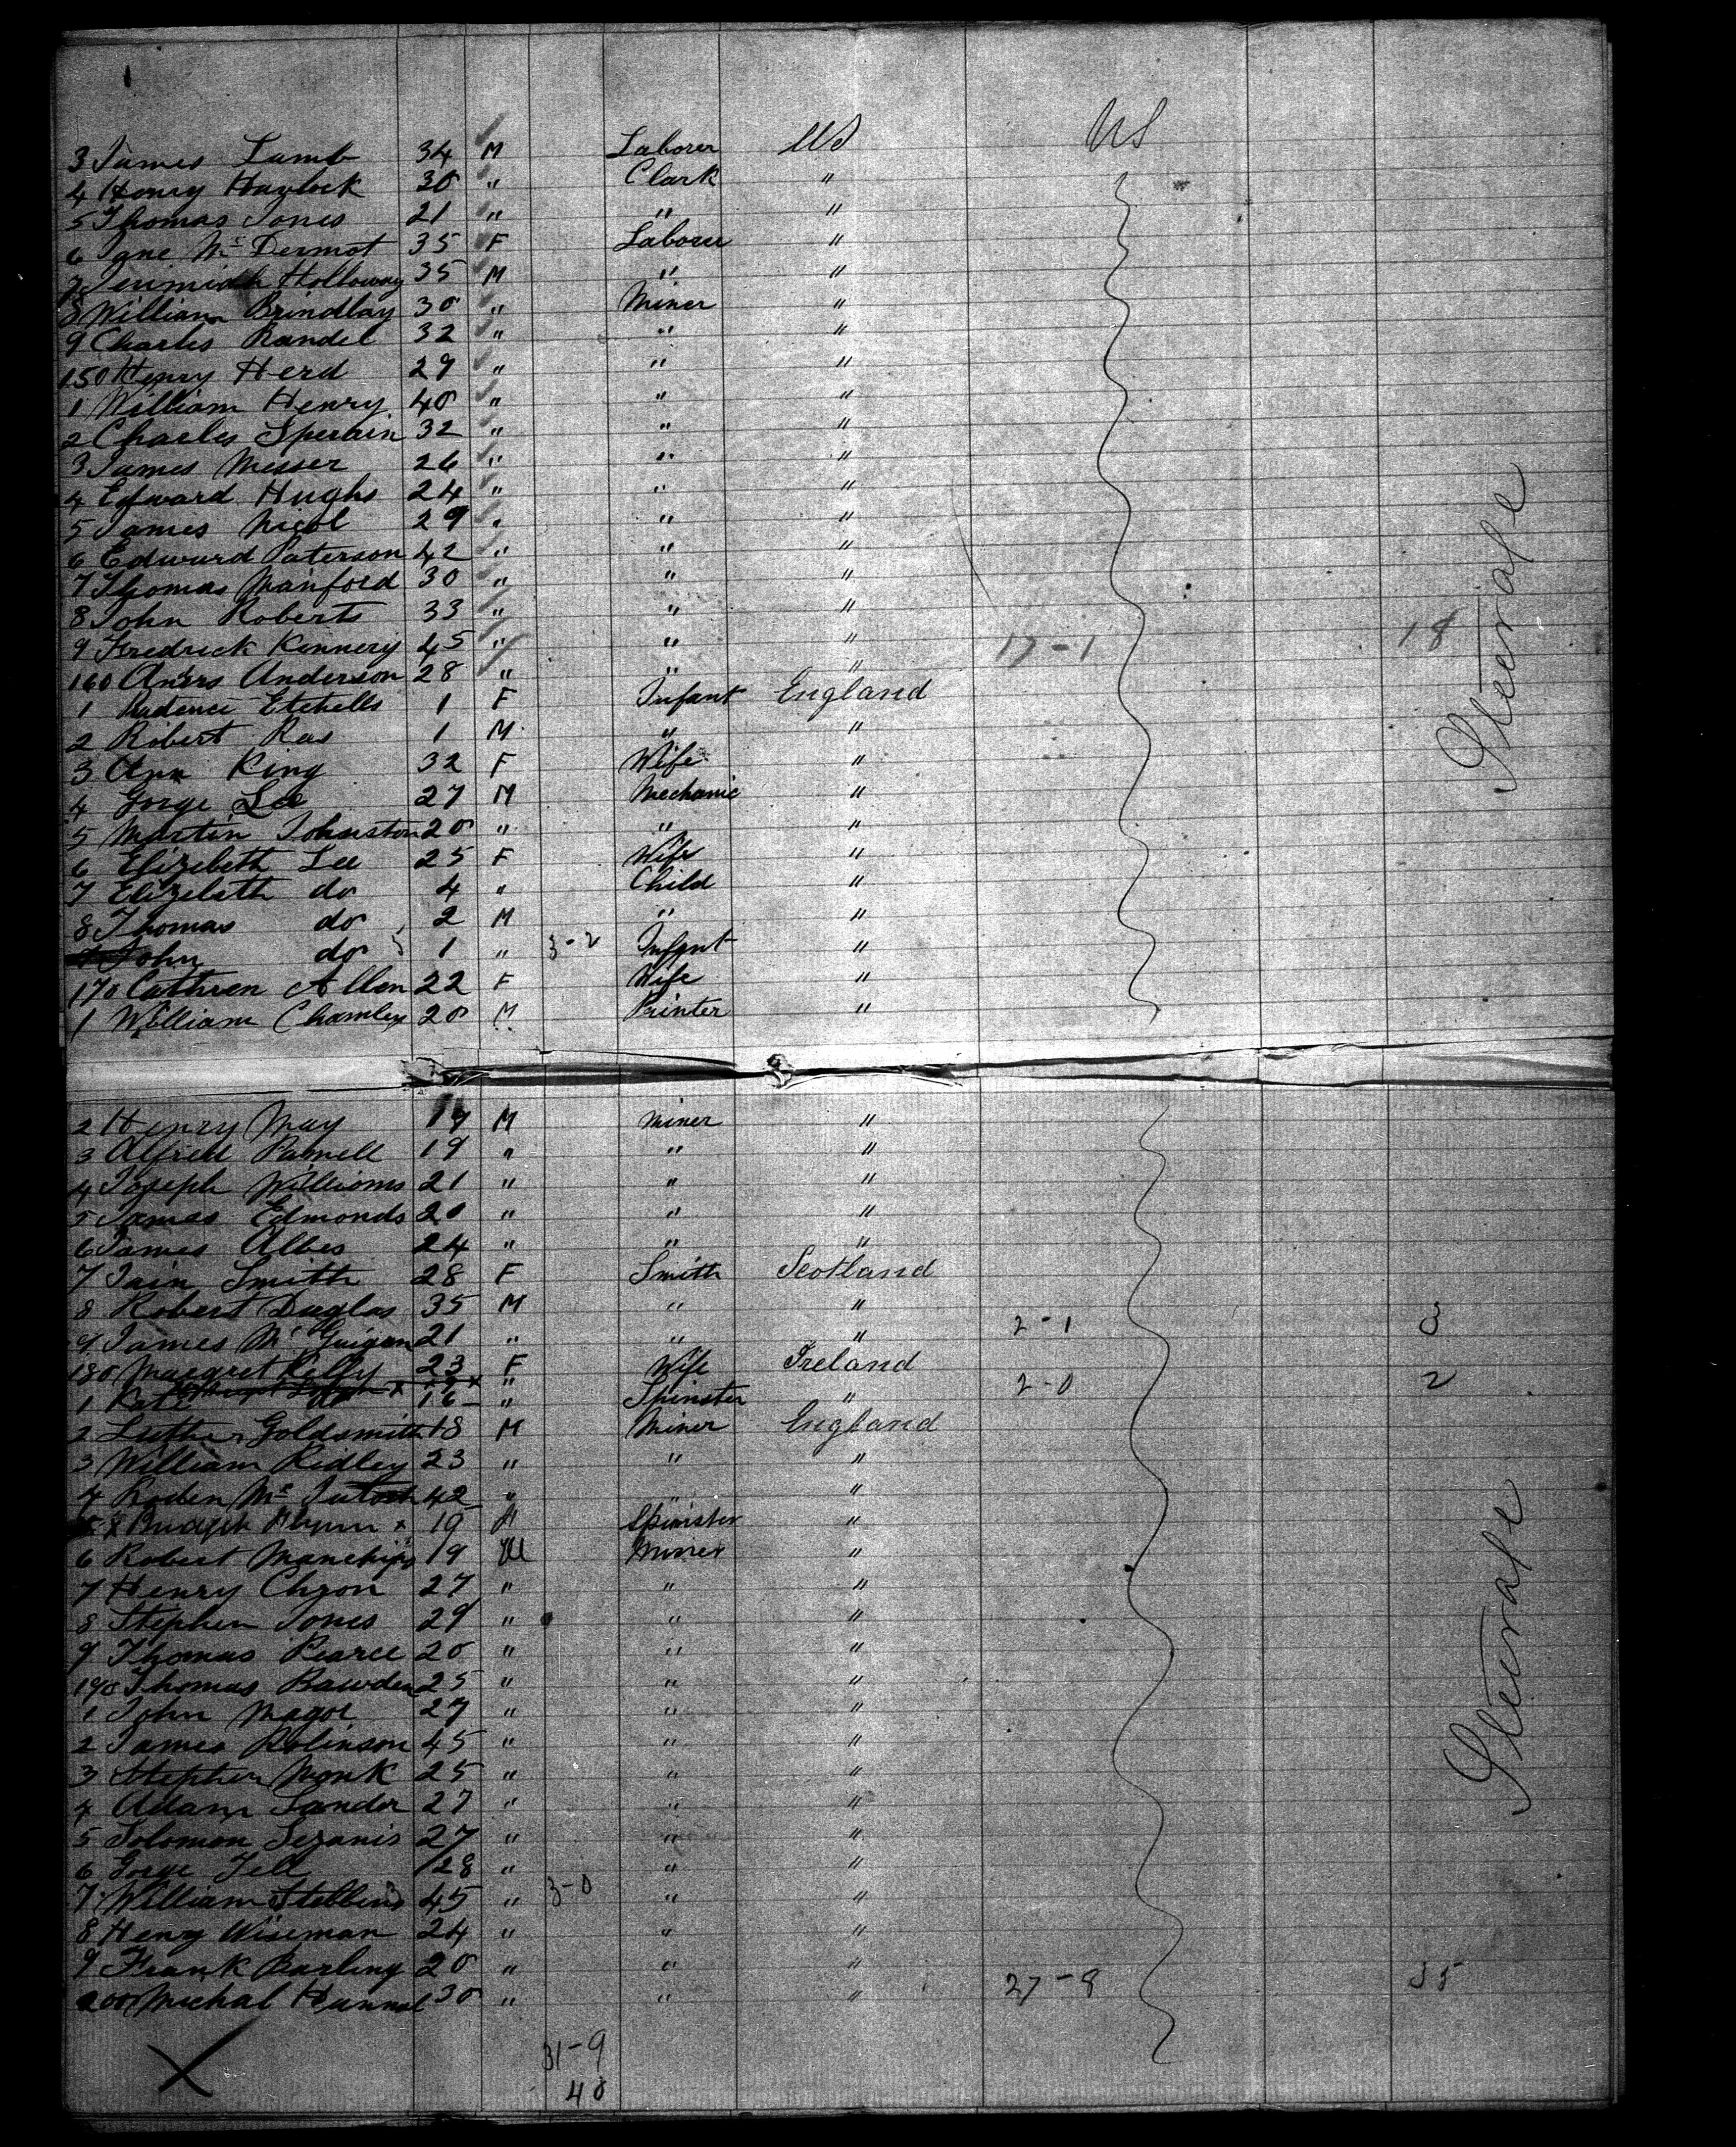 3 James Lamb 34 M Laborer US US
4 Henry Havlock 30 " Clark "
5 Thomas Jones 21 " " "
6 Jane Mc Dermot 35 F Laborer "
7 Jerimiah Holloway 35 M " "
8 William Brindlay 30 " Miner "
9 Charles Randel 32 " " "
150 Henry Herd 29 " " "
1 William Henry 40 " " "
2 Charles 32 " " "
3 James Messer 26 " " "
4 Edward Hughs 24 " " "
5 James Nicol 29 " " "
6 Edward Paterson 42 " " "
7 Thomas Manford 30 " " "
8 John Roberts 33 " " "
9 Fredrick Kinnery 45 " " " 17-1 18
160 Anders Anderson 28 " " "
1 Prudence Etchells 1 F Infant England
2 Robert Ras 1 M " "
3 Ann King 32 F Wife "
4 Gorge Lee 27 M Mechanic "
5 Martin Johnston 20 " " "
6 Elizebeth Lee 25 F Wife "
7 Elizebeth do 4 " Child "
8 Thomas do 2 M " "
9 John do 1 " 3-2 Infant "
170 Cathren Allen 22 F Wife "
1 William Chamley 20 M Printer "
Steerage
2 Henry May 19 M Miner "
3 Alfred Parnell 19 " " "
4 Joseph Williams 21 " " "
5 James Edmonds 20 " " "
6 James Albes 24 " " "
7 Jain Smith 28 F Smith Scotland
8 Robert Duglas 35 M " "
9 James Mc Guigan 21 " " " 2-1 3
180 Margret Kelly 23 F Wife Ireland
1 Kate do 16 " Spinster " 2-0 2
2 Luther Goldsmith 18 M Miner England
3 William Ridley 23 " " "
4 Roden Mc Intosh 42 " " "
5 x Bridget Flynn x 19 Spinster "
6 Robert 19 M Miner "
7 Henry Chyon 27 " " "
8 Stephen Jones 29 " " "
9 Thomas Pearce 20 " " "
190 Thomas Bawden 25 " " "
1 John Magor 27 " " "
2 James Robinson 45 " " "
3 Stephen Monk 25 " " "
4 Adam Sander 27 " " "
5 Solomon 27 " " "
6 Gorge Tell 28 " " "
7 William Stebbins 45 " 3-0 " "
8 Henry Wiseman 24 " " "
9 Frank Barling 20 " " "
200 Michal Hannal 30 " " " 27-8 35
Steerage
31-9
40